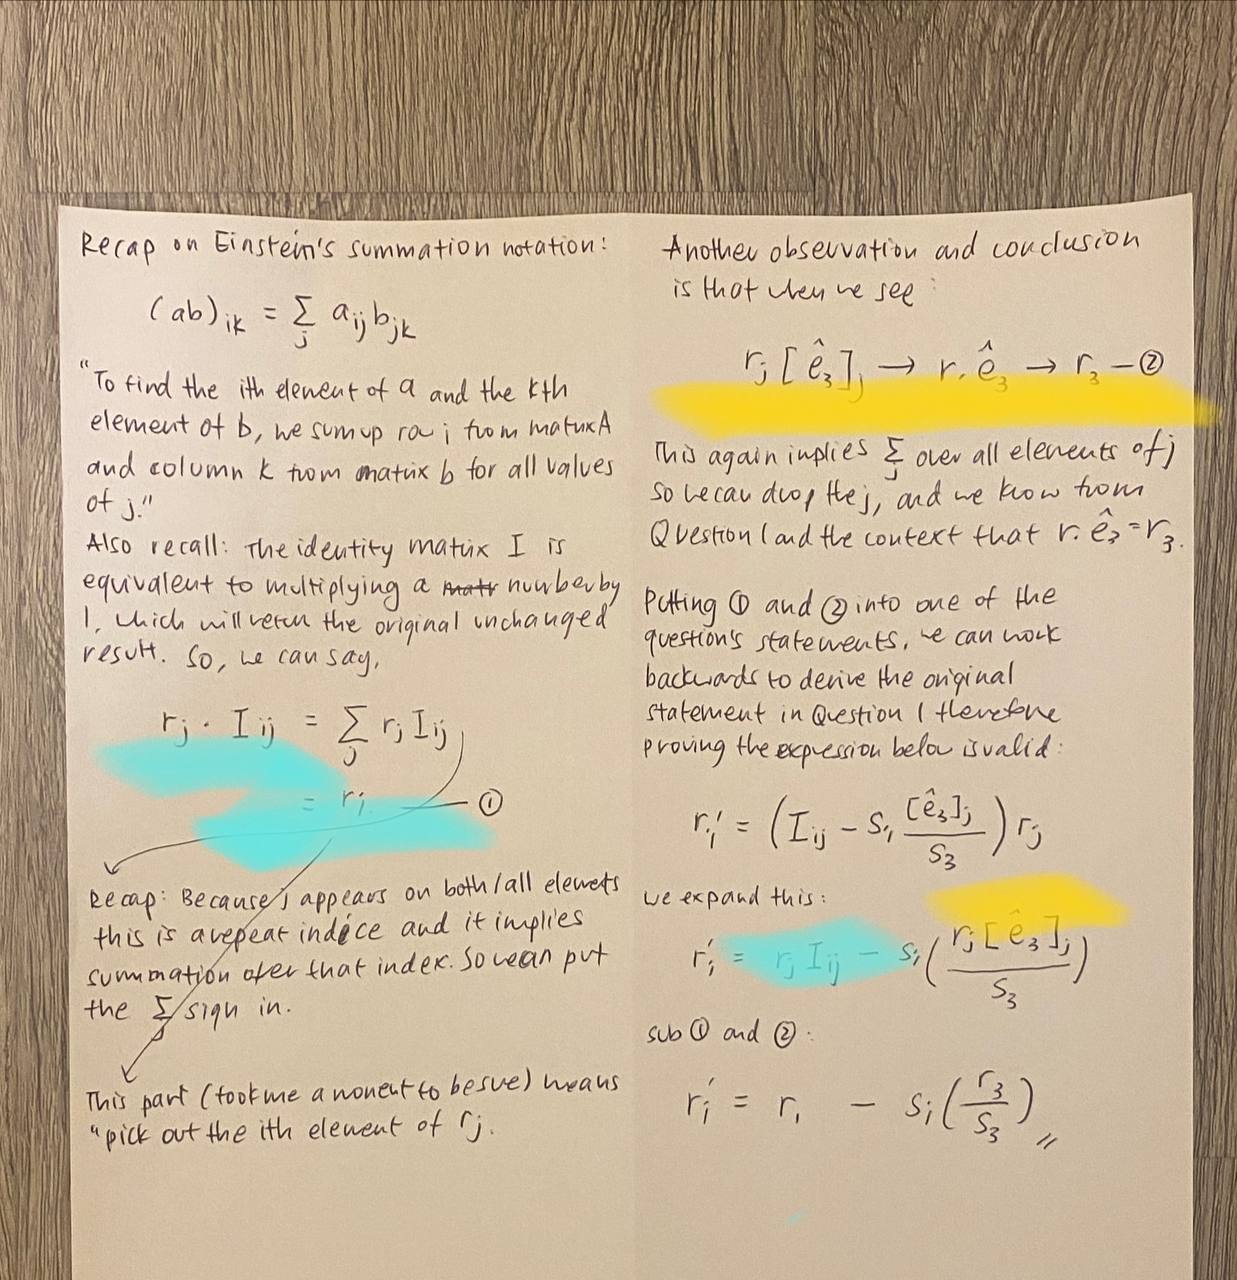 Recap on Einstein's summation notation:
(ab)ik = Σj aij bjk
"To find the ith element of a and the kth
element of b, we sum up row i from matrix A
and column k from matrix b for all values
of j."
Also recall: The identity matrix I is
equivalent to multiplying a matr number by
1, which will return the original unchanged
result. So, we can say,
rj · Iij = Σj rj Iij
= ri — ①
Recap: Because j appears on both/all elements
this is a repeat indice and it implies
summation over that index. So we can put
the Σj sign in.
This part (took me a moment to be sure) means
"pick out the ith element of rj.
Another observation and conclusion
is that when we see:
rj [ê3]j → r.ê3 → r3 — ②
This again implies Σj over all elements of j
so we can drop the j, and we know from
Question 1 and the context that r.ê3 = r3.
Putting ① and ② into one of the
question's statements, we can work
backwards to derive the original
statement in Question 1 therefore
proving the expression below is valid:
ri' = (Iij - si [ê3]j / s3) rj
we expand this:
ri' = rj Iij - si (rj [ê3]j / s3)
sub ① and ②:
ri' = ri - si (r3 / s3) //